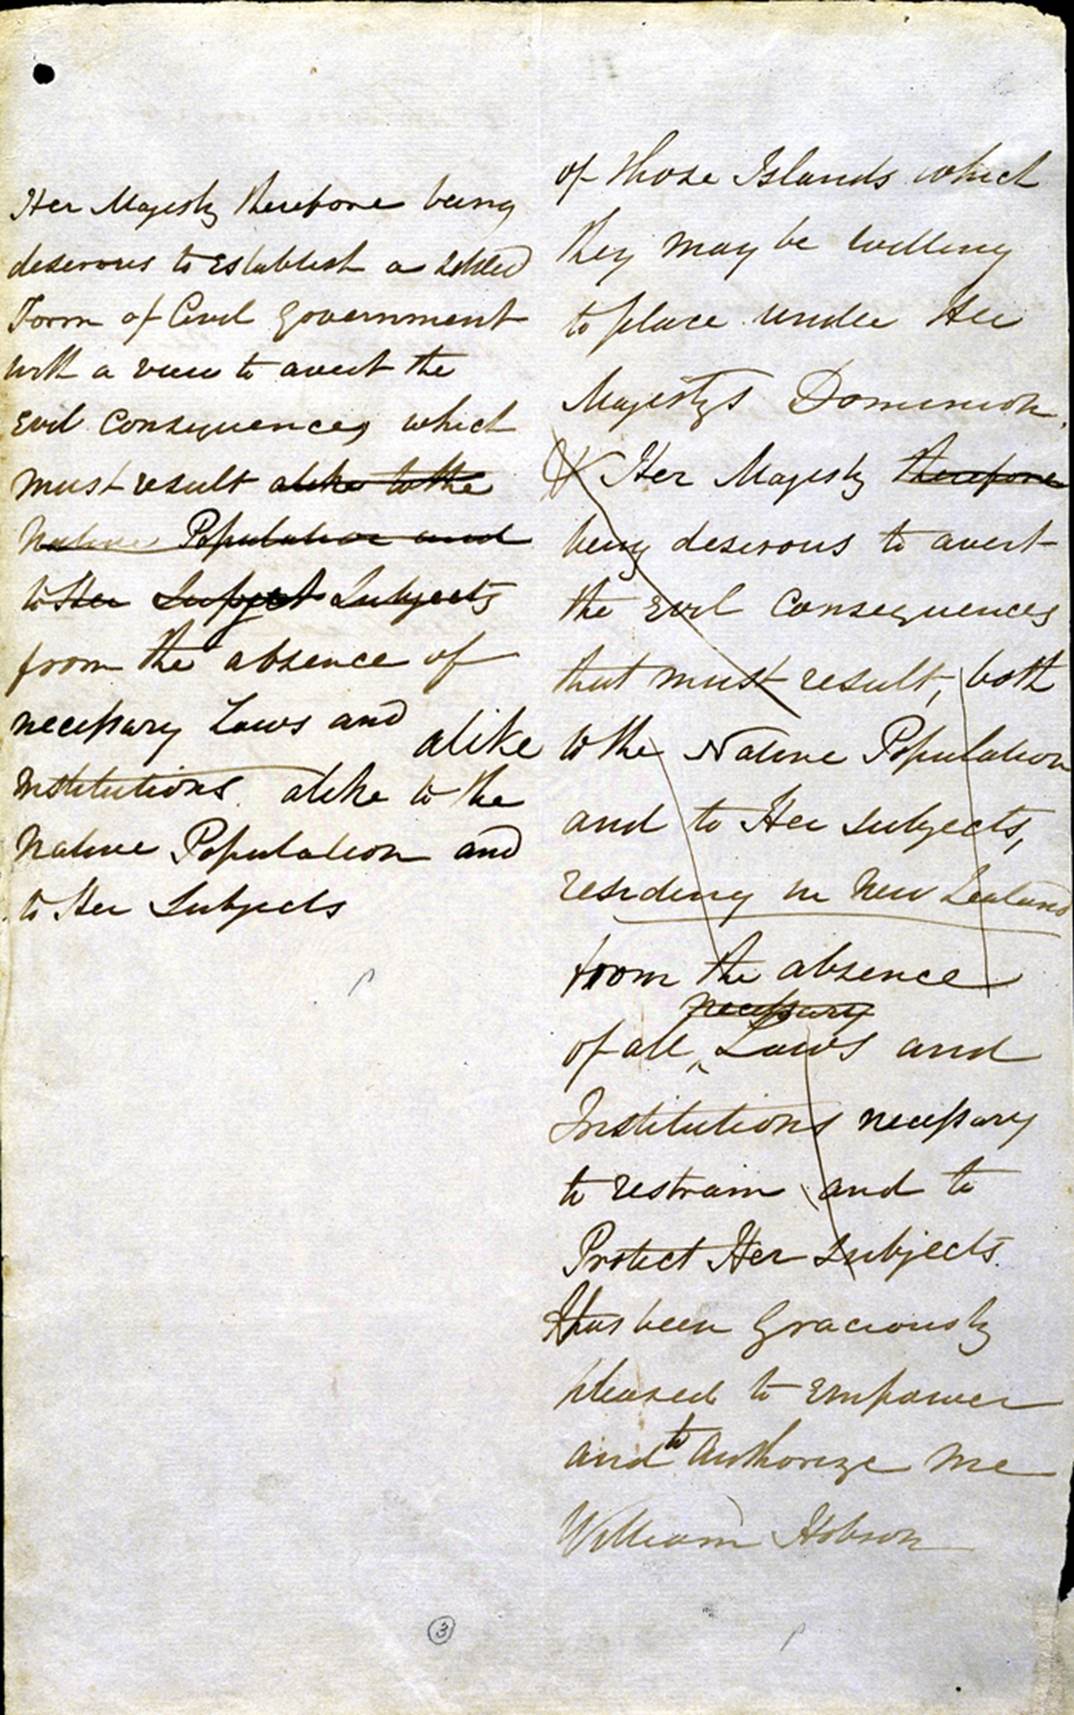 Her Majesty therefore being
desirous to establish a settled
Form of Civil Government
with a view to avert the
Evil Consequences which
must result alike to the
Native Population and
to Her Subject Subjects
from the absence of
necessary Laws and
alike
Institutions alike to the
Native Population and
to Her Subjects
of those Islands which
they may be willing
to place under Her
Majesty's Dominion.
Her Majesty therefore
being desirous to avert
the Evil Consequences
that must result, both
to the Native Population
and to Her Subjects,
residing in New Zealand
from the absence
necessary
of all Laws and
Institutions necessary
to restrain and to
Protect Her Subjects.
Has been Graciously
pleased to Empower
and to Authorize me
William Hobson
3